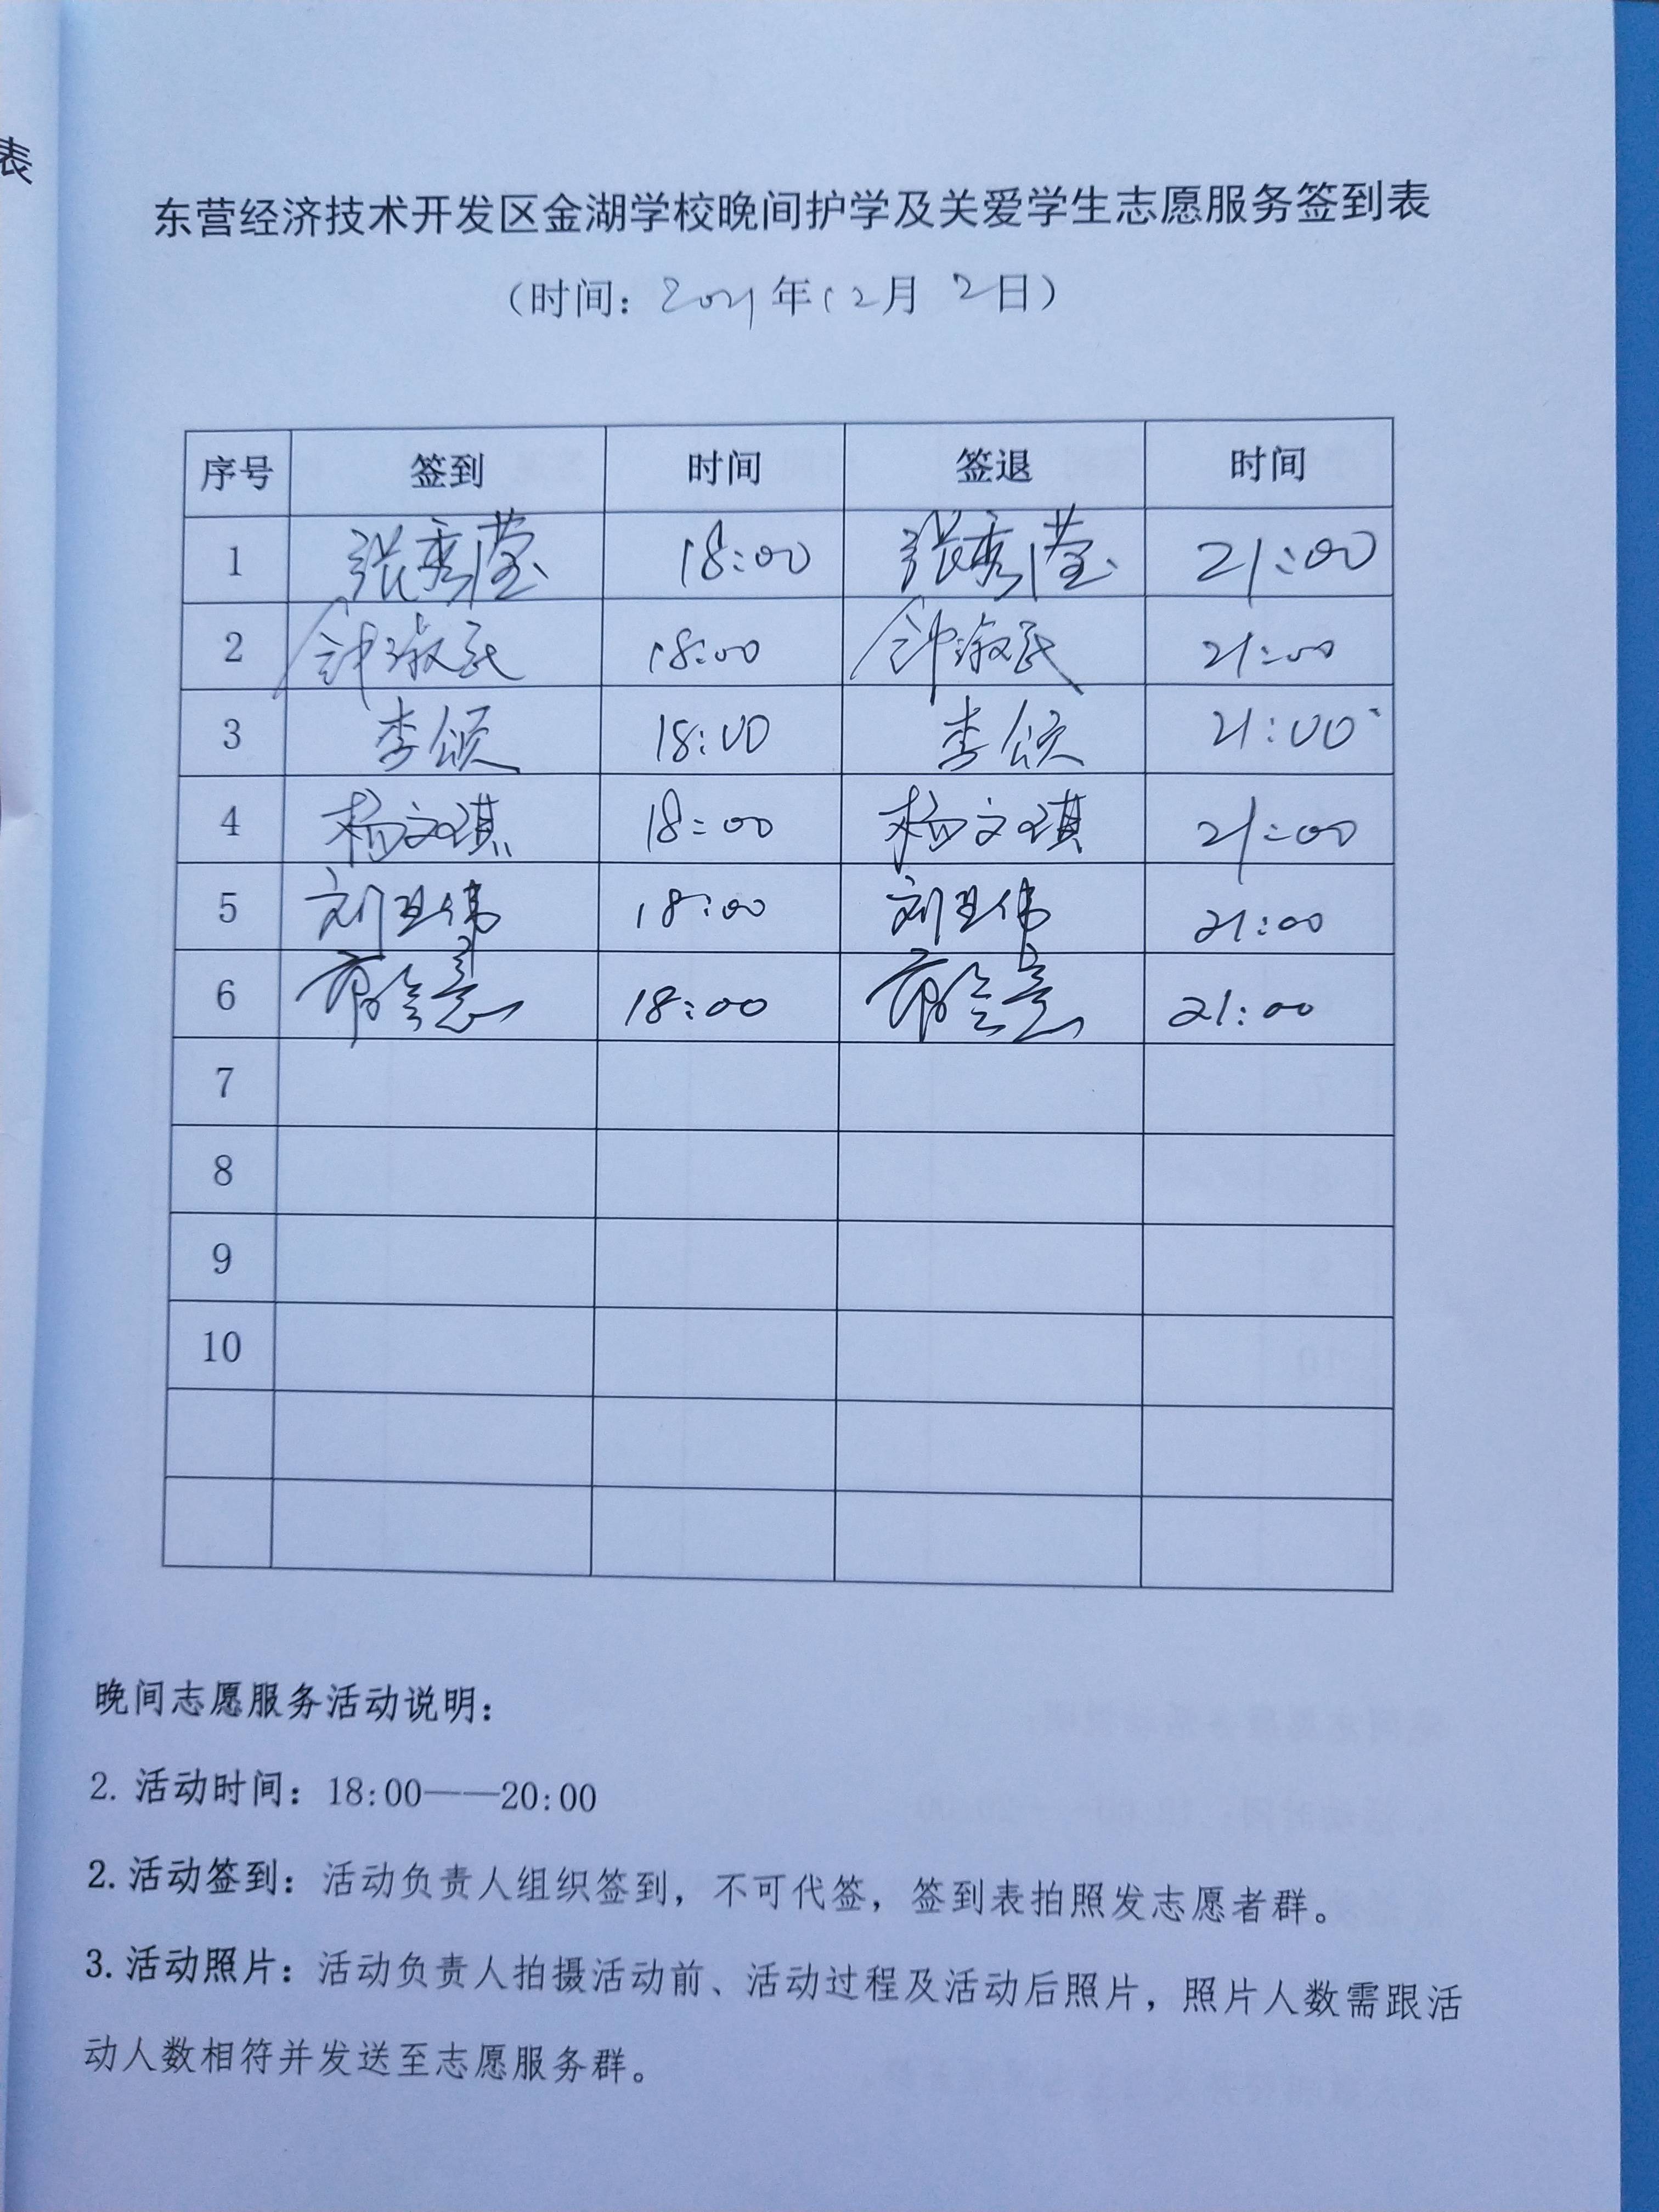 表
东营经济技术开发区金湖学校晚间护学及关爱学生志愿服务签到表
（时间：2021年12月2日）
序号 签到 时间 签退 时间
1 张秀莹 18:00 张秀莹 21:00
2 钟淑民 18:00 钟淑民 21:00
3 李颂 18:00 李颂 21:00
4 杨文琪 18:00 杨文琪 21:00
5 刘卫伟 18:00 刘卫伟 21:00
6 18:00 21:00
7
8
9
10
晚间志愿服务活动说明：
2. 活动时间：18:00——20:00
2. 活动签到：活动负责人组织签到，不可代签，签到表拍照发志愿者群。
3. 活动照片：活动负责人拍摄活动前、活动过程及活动后照片，照片人数需跟活
动人数相符并发送至志愿服务群。